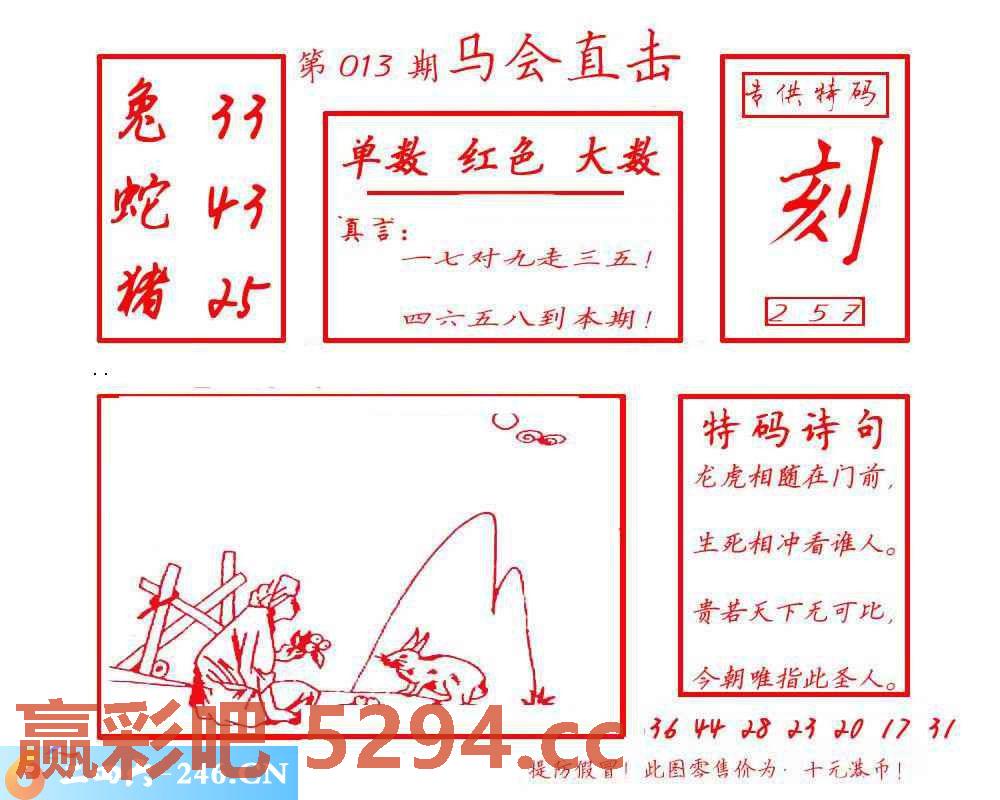 第 013 期 马会直击
兔 33
蛇 43
猪 25
单数 红色 大数
真言：
一七对九走三五！
四六五八到本期！
专供特码
刻
2 5 7
特码诗句
龙虎相随在门前，
生死相冲看谁人。
贵若天下无可比，
今朝唯指此圣人。
36 44 28 23 20 17 31
赢彩吧 5294.cc
-246.CN
提防假冒！此图零售价为：十元港币！